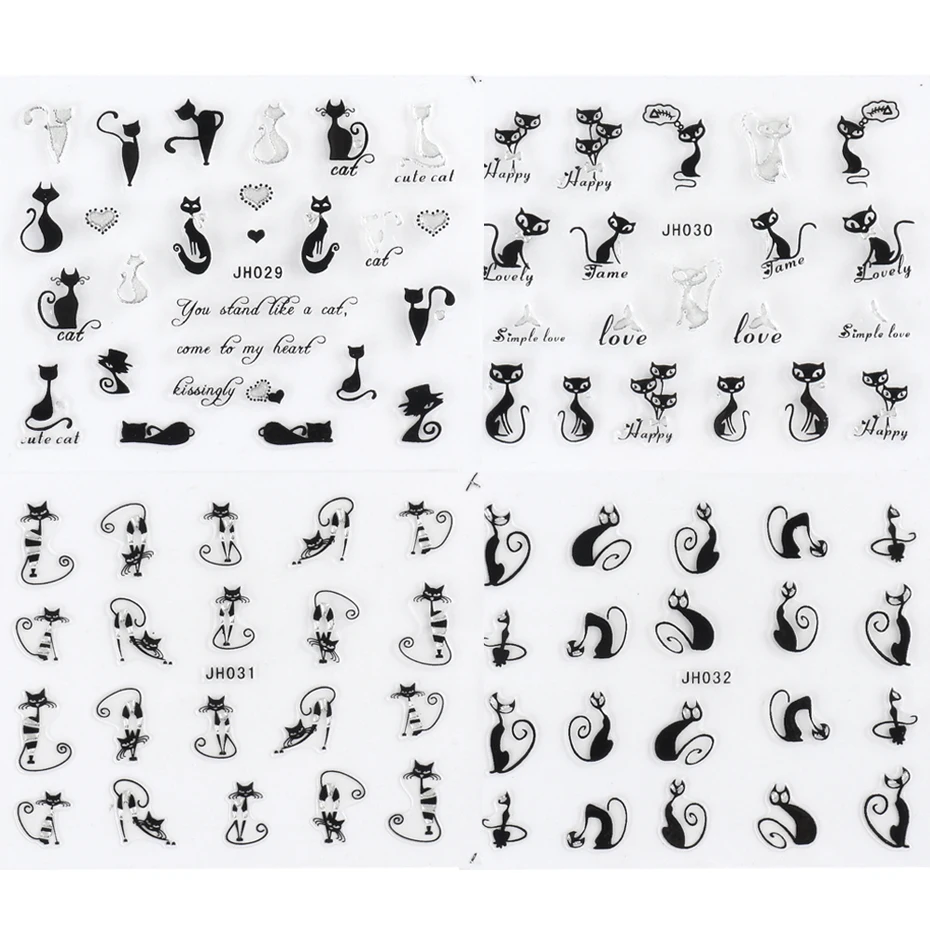 cat
cute cat
JH029
cat
cat
You stand like a cat,
come to my heart
kissingly
cute cat
Happy
Happy
JH030
Lovely
Tame
Tame
Lovely
Simple love
love
love
Simple love
Happy
Happy
JH031
JH032